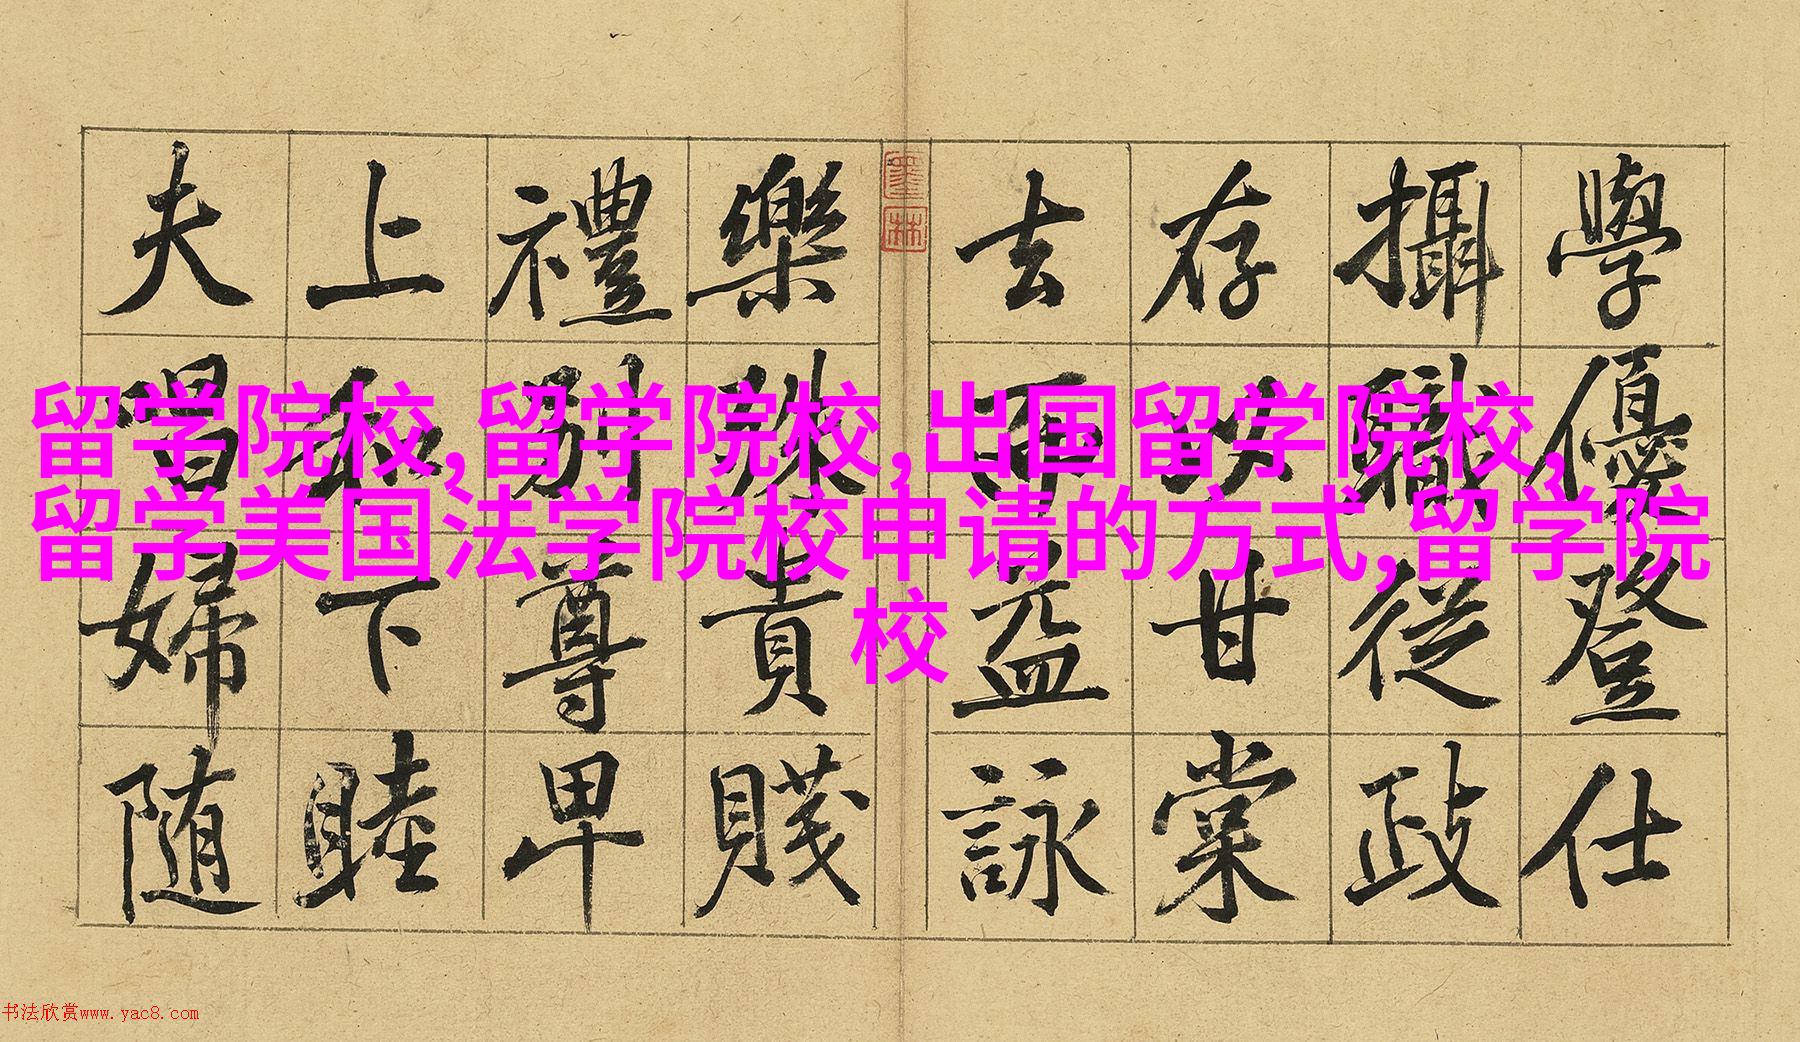 留学院校,留学院校,出国留学院校,
留学美国法学院校申请的方式,留学院
校
學優登仕
攝職從政
存以甘棠
去而益詠
樂殊貴賤
禮別尊卑
上和下睦
夫唱婦随
墨林
书法欣赏www.yac8.com